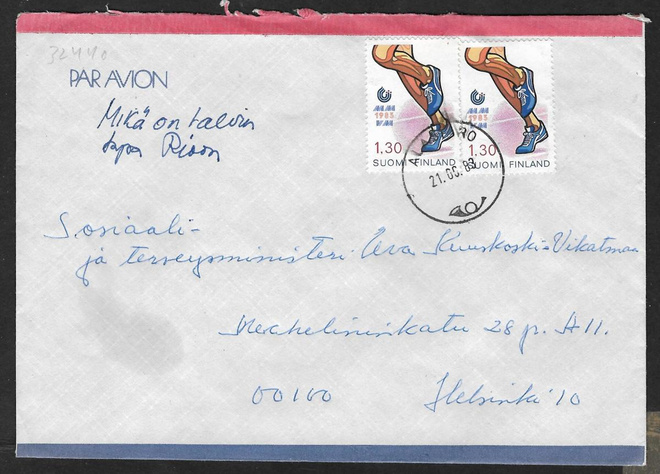 32440
PAR AVION
Mikä on talvin
tapa Rison
MM
1983
VM
1.30
SUOMI FINLAND
MM
1983
VM
1.30
SUOMI FINLAND
21.06.83
Sosiaali-
ja terveysministeri Eeva Kuuskoski-Vikatmaa
Mechelininkatu 28 p. A 11.
00100 Helsinki 10